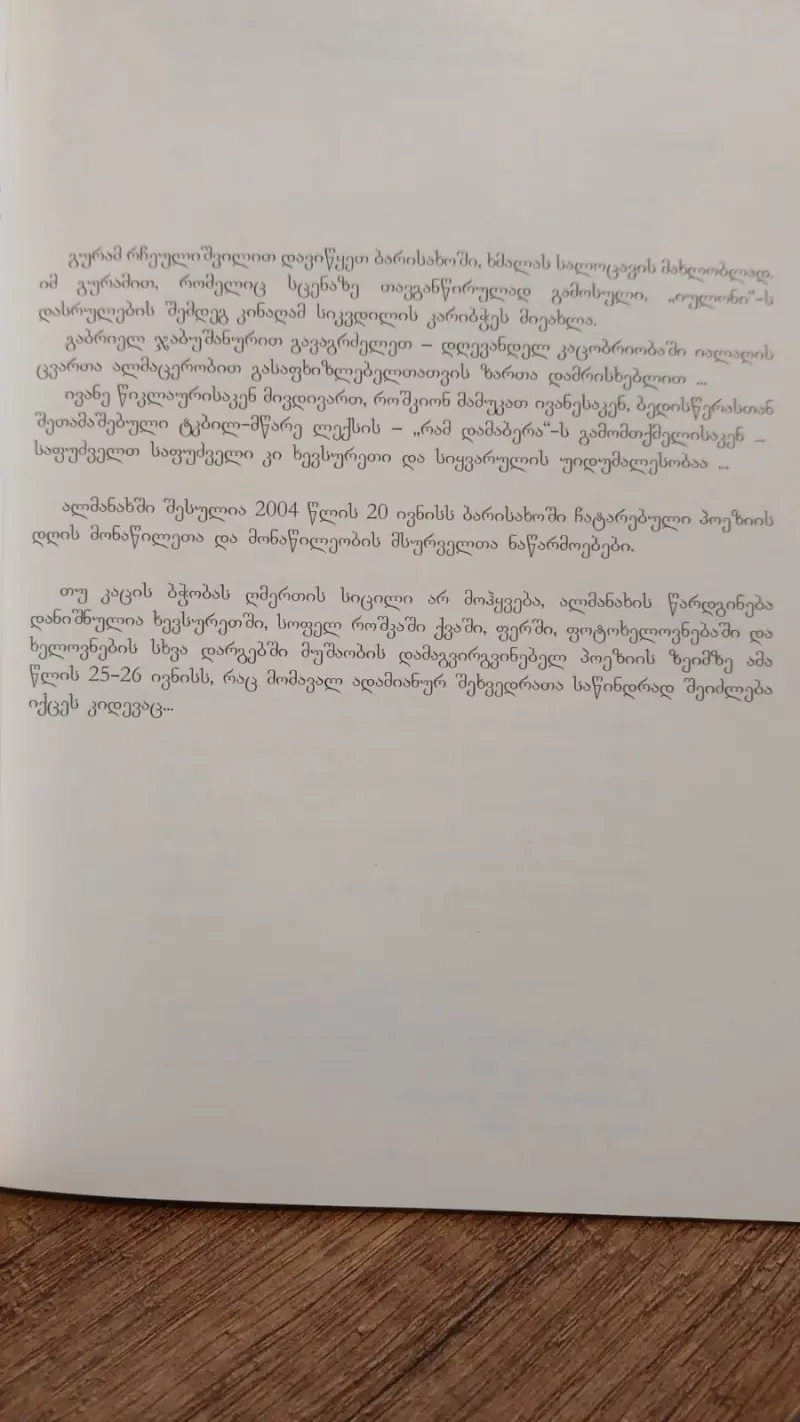 გურამ რჩეულიშვილით დავიწყეთ ბარისახოში, ხმალას სალოცავის მახლობლად.
იმ გურამით, რომელიც სცენაზე თავგანწირულად გამოსული, „იულონი“-ს
დასრულების შემდეგ კინაღამ სიკვდილის კარიბჭეს მიეახლა.
გაბრიელ ჯაბუშანურით გავაგრძელეთ – დღევანდელ კაცობრიობაში იალაღის
ცვართა ალმაცერობით გასაფხიზლებელთათვის ზართა დამრისხებლით ...
ივანე წიკლაურისაკენ მივდივართ, როშკიონ მამუკათ ივანესაკენ, ბედისწერასთან
შეთამაშებული ტკბილ-მწარე ლექსის – „რამ დამაბერა“-ს გამომთქმელისაკენ ...
საფუძველთ საფუძველი კი ხევსურეთი და სიყვარულის უიდუმალესობაა ...
ალმანახში შესულია 2004 წლის 20 ივნისს ბარისახოში ჩატარებული პოეზიის
დღის მონაწილეთა და მონაწილეობის მსურველთა ნაწარმოებები.
თუ კაცის ბჭობას ღმერთის სიცილი არ მოჰყვება, ალმანახის წარდგინება
დანიშნულია ხევსურეთში, სოფელ როშკაში ქვაში, ფერში, ფოტოხელოვნებაში და
ხელოვნების სხვა დარგებში მუშაობის დამაგვირგვინებელ პოეზიის ზეიმზე ამა
წლის 25-26 ივნისს, რაც მომავალ ადამიანურ შეხვედრათა საწინდრად შეიძლება
იქცეს კიდევაც...